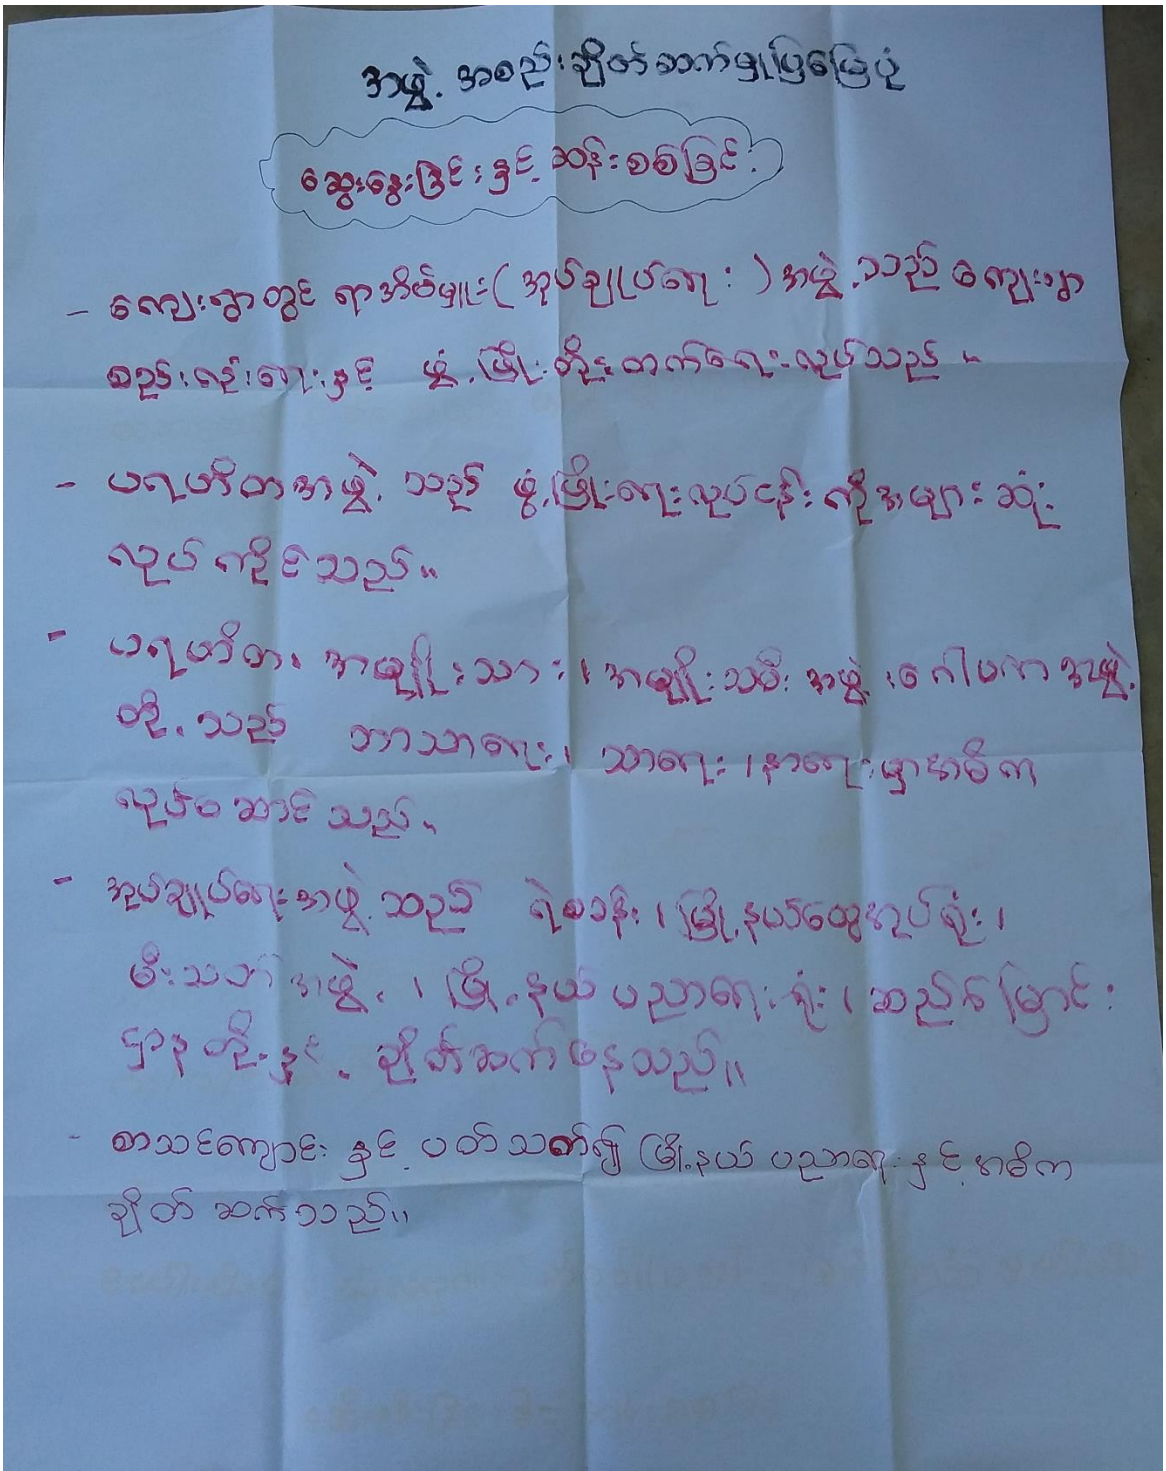 အဖွဲ့အစည်းချိတ်ဆက်မှုပြမြေပုံ
ဆွေးနွေးခြင်းနှင့် ဆန်းစစ်ခြင်း
- ကျေးရွာတွင် ရာအိမ်မှူး (အုပ်ချုပ်ရေး) အဖွဲ့သည် ကျေးရွာ
စည်းလုံးရေးနှင့် ဖွံ့ဖြိုးတိုးတက်ရေးလုပ်သည်။
- ပရဟိတအဖွဲ့သည် ဖွံ့ဖြိုးရေးလုပ်ငန်းကိုအများဆုံး
လုပ်ကိုင်သည်။
- ပရဟိတ၊ အမျိုးသား၊ အမျိုးသမီးအဖွဲ့၊ ဂေါပကအဖွဲ့
တို့သည် ဘာသာရေး၊ သာရေး၊ နာရေးမှာအဓိက
လုပ်ဆောင်သည်။
- အုပ်ချုပ်ရေးအဖွဲ့သည် ရဲစခန်း၊ မြို့နယ်ထွေအုပ်ရုံး၊
မီးသတ်အဖွဲ့၊ မြို့နယ်ပညာရေးရုံး၊ ဆည်မြောင်း
ဌာနတို့နှင့် ချိတ်ဆက်နေသည်။
- စာသင်ကျောင်းနှင့် ပတ်သတ်၍ မြို့နယ်ပညာရေးနှင့်အဓိက
ချိတ်ဆက်သည်။